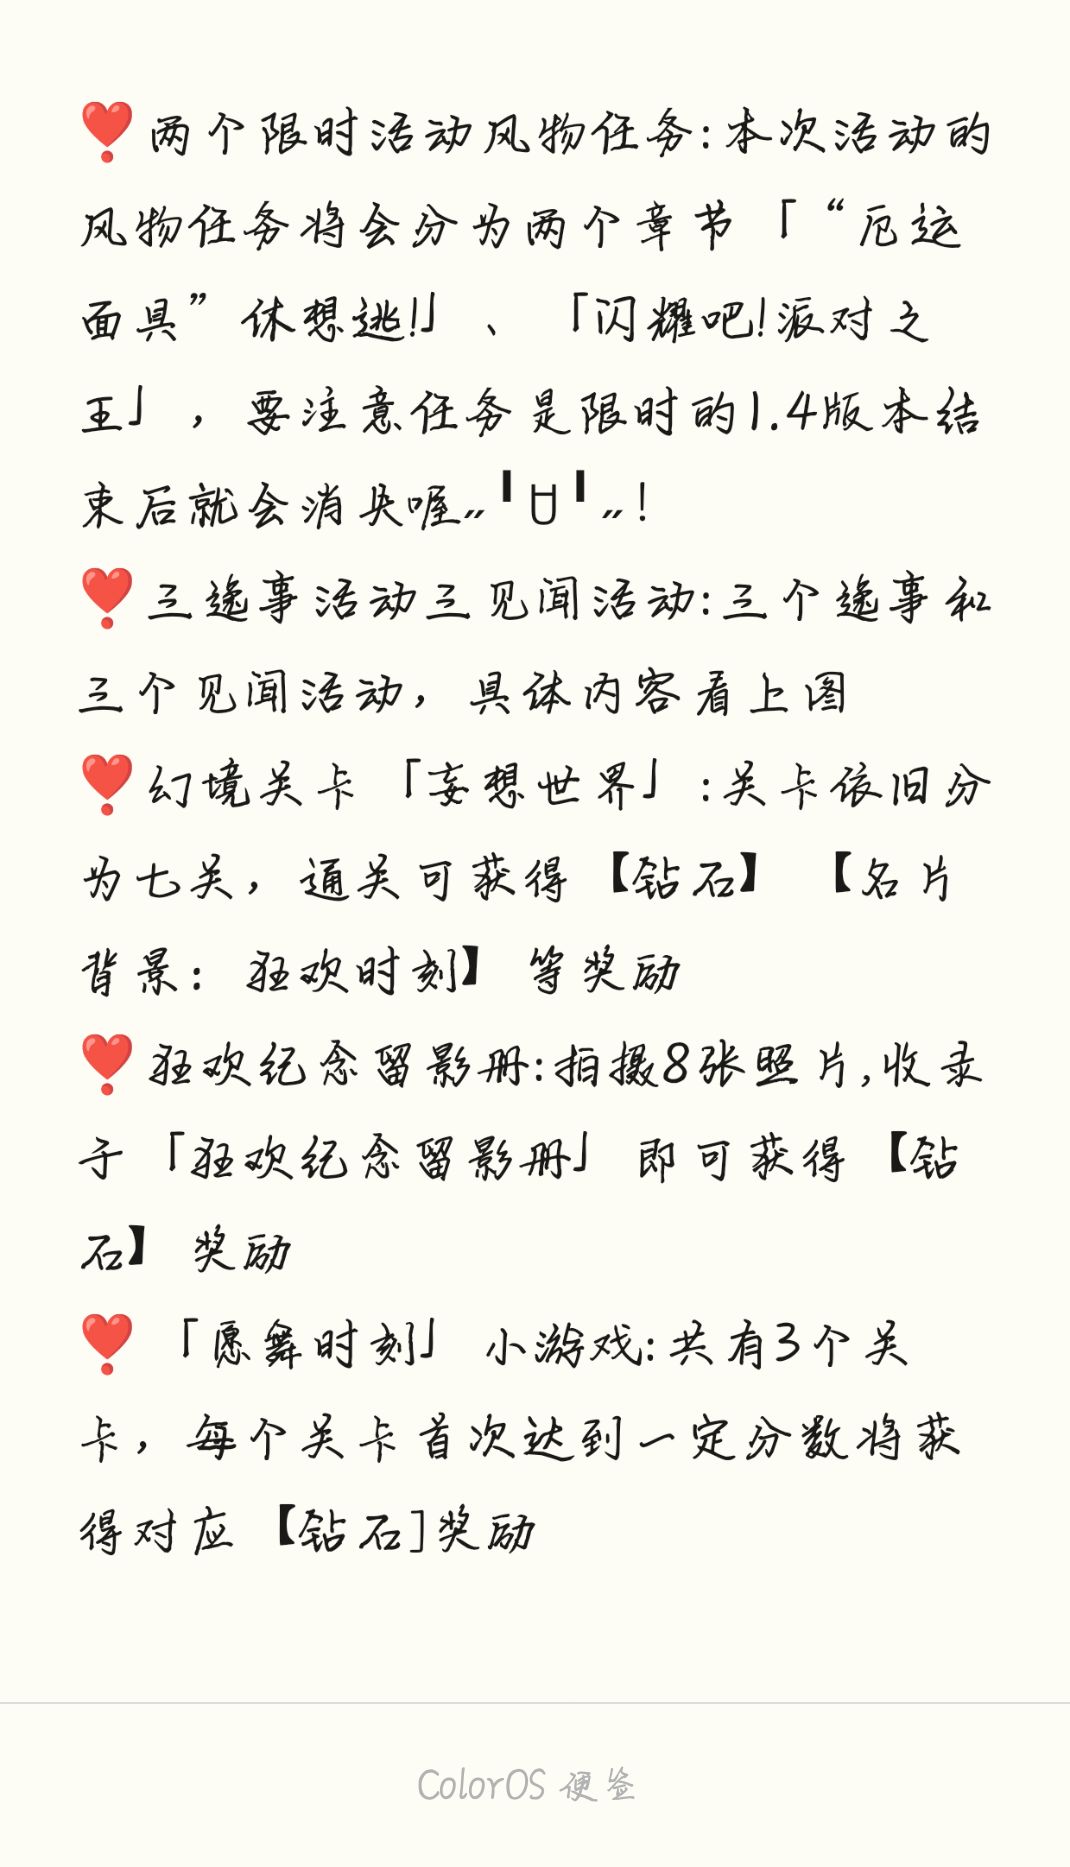 ❣️两个限时活动风物任务:本次活动的
风物任务将会分为两个章节「“厄运
面具”休想逃!」、「闪耀吧!派对之
王」，要注意任务是限时的1.4版本结
束后就会消失喔„╹ꇴ╹„!
❣️三逸事活动三见闻活动:三个逸事和
三个见闻活动，具体内容看上图
❣️幻境关卡「妄想世界」:关卡依旧分
为七关，通关可获得【钻石】【名片
背景：狂欢时刻】等奖励
❣️狂欢纪念留影册:拍摄8张照片,收录
于「狂欢纪念留影册」即可获得【钻
石】奖励
❣️「愿舞时刻」小游戏:共有3个关
卡，每个关卡首次达到一定分数将获
得对应【钻石]奖励
ColorOS 便签